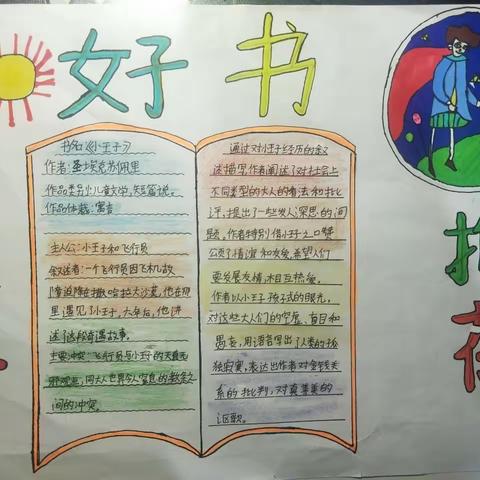 好书
推荐
书名《小王子》
作者：圣埃克苏佩里
作品类别：儿童文学，短篇说。
作品体裁：寓言
主人公：小王子和飞行员
叙述者：一个飞行员因飞机故
障迫降在撒哈拉大沙漠，他在那
里遇见了小王子，六年后，他讲
述这段奇遇故事。
主要冲突：飞行员与小王子的天真无
邪观点，同大人世界令人窒息的教条之
间的冲突。
通过对小王子经历的叙
述描写作者阐述了对社会上
不同类型的大人的看法和批
评，提出了一些发人深思的问
题。作者特别借小王子之口赞
公页了情谊和友爱，希望人们
要发展友情，木目互热爱。
作者以小王子孩子式的眼光，
对这些大人们的空虚、盲目和
愚妄，用语言写出了人类的孤
独寂寞，表达出作者对金钱关
系的批判，对真善美的
讴歌。